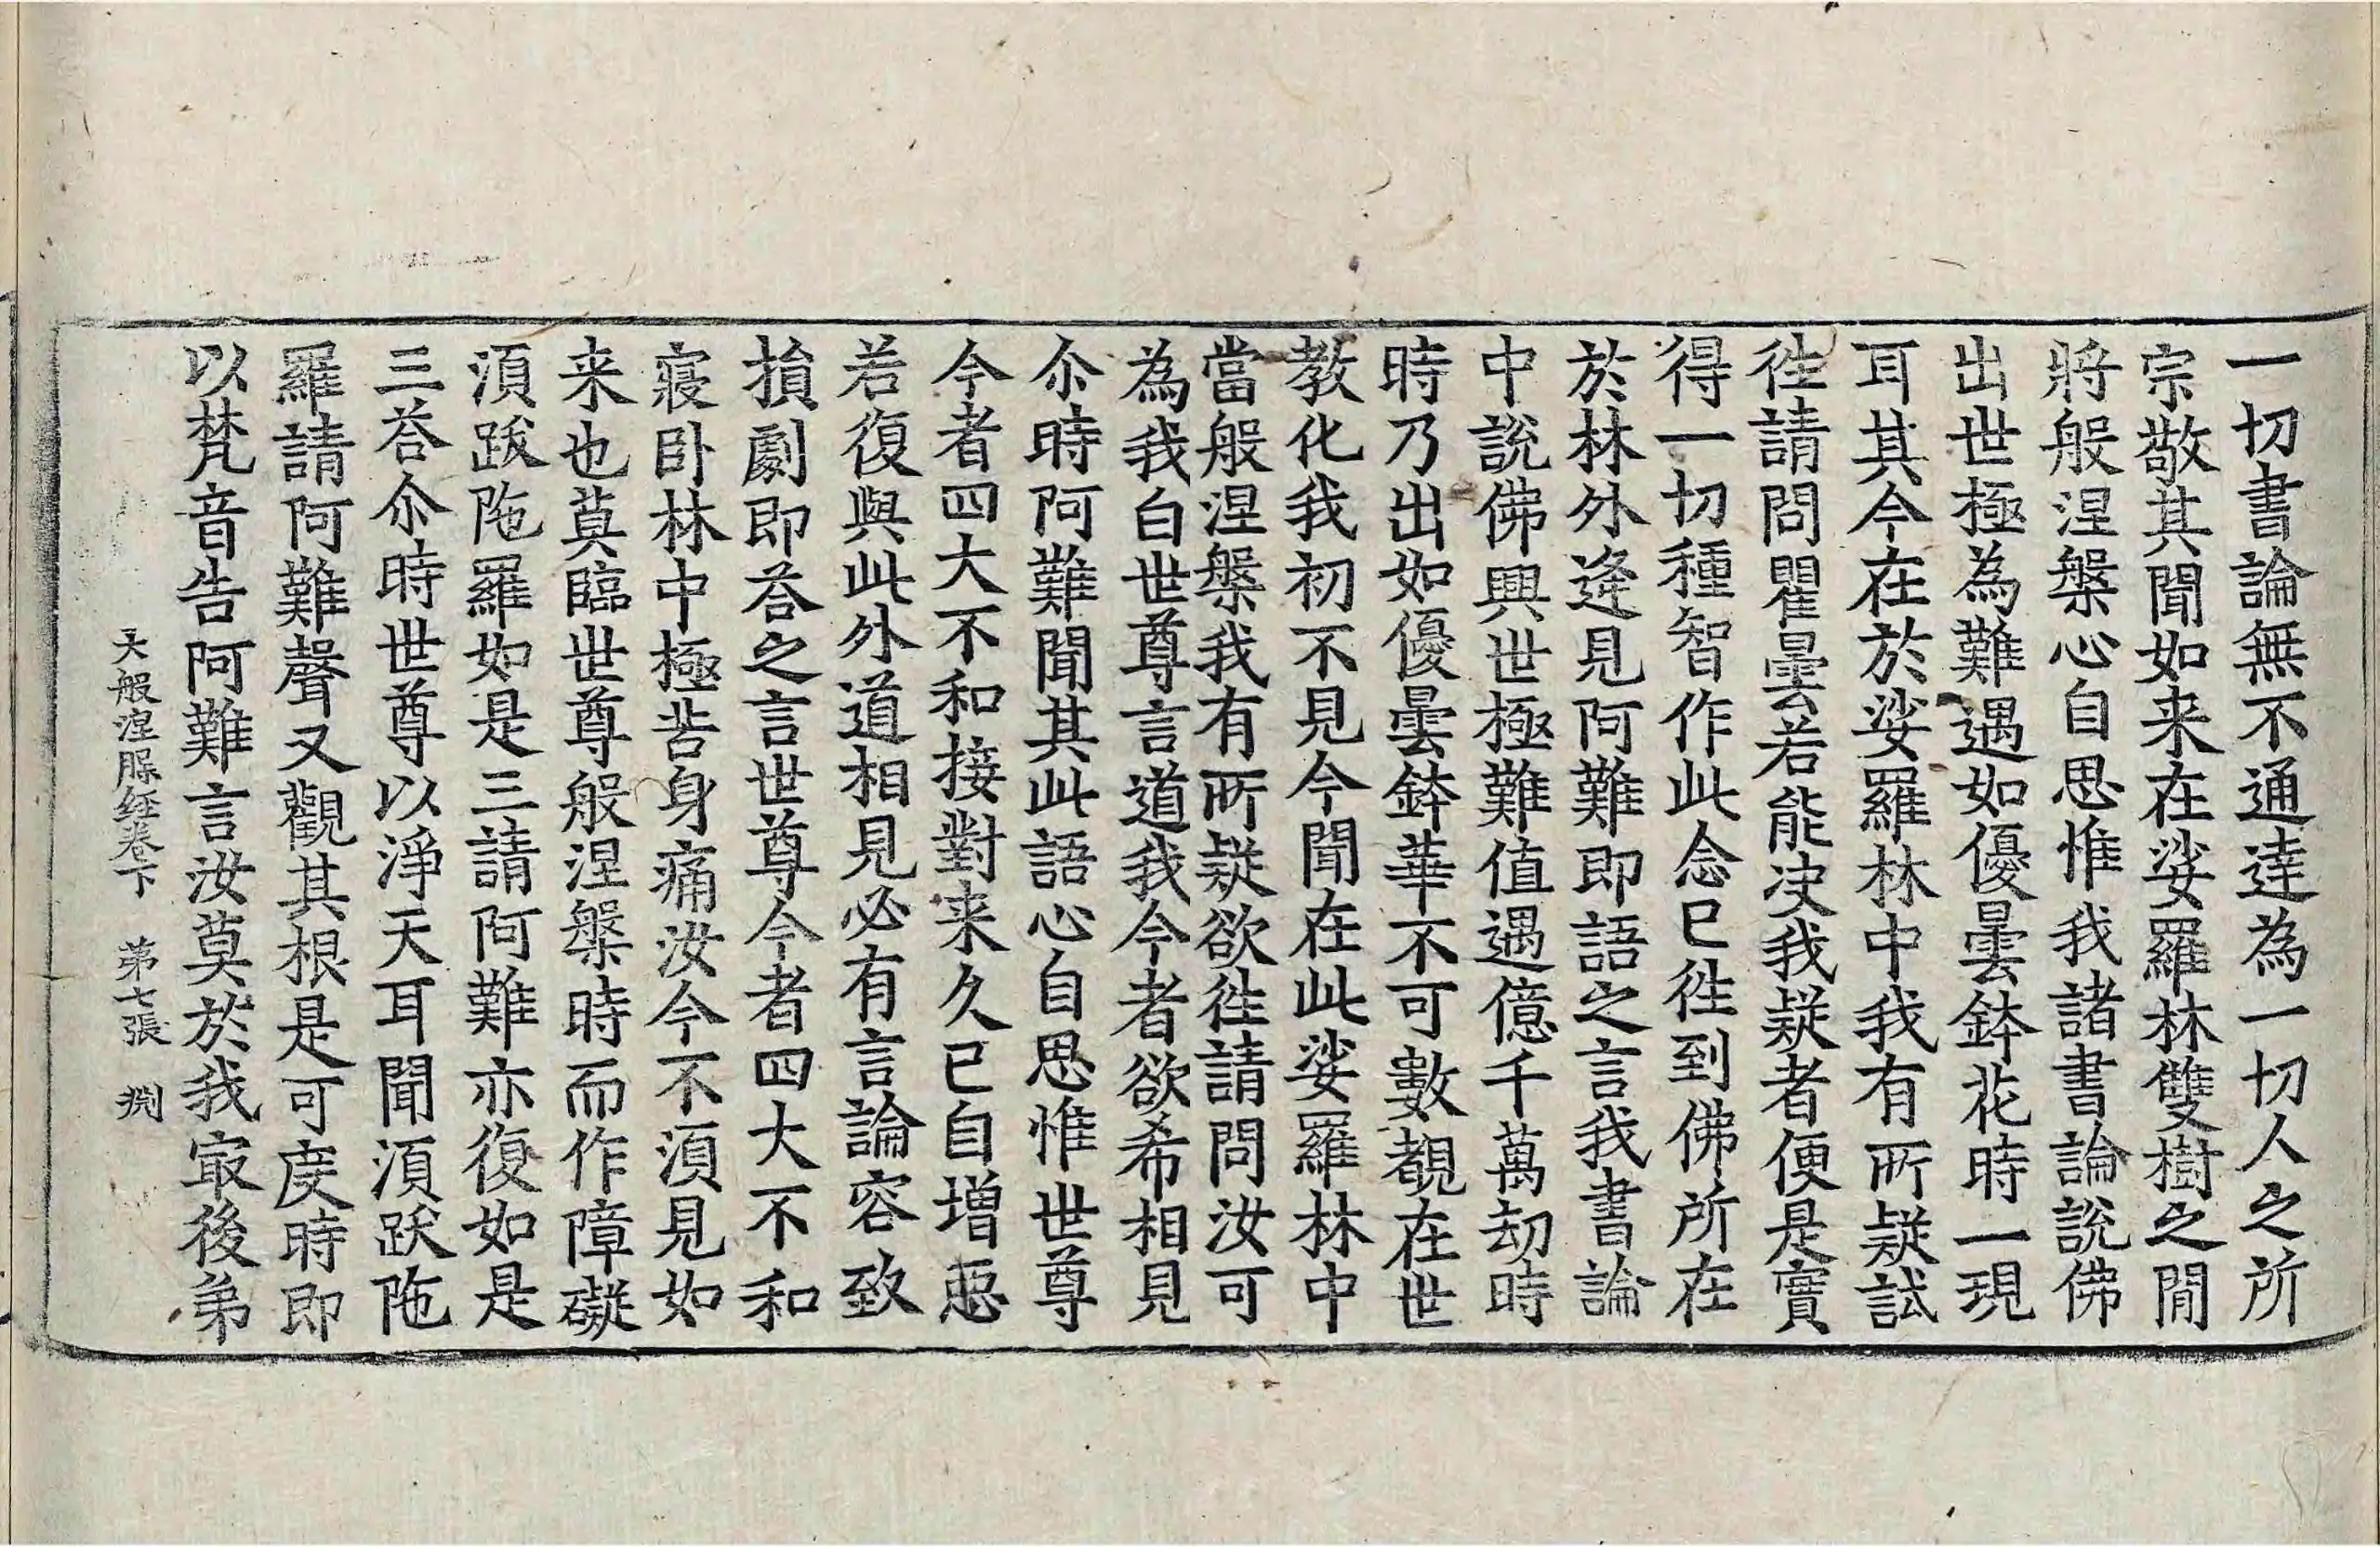 一切書論無不通達為一切人之所
宗敬其聞如来在娑羅林雙樹之間
將般涅槃心自思惟我諸書論說佛
出世極為難遇如優曇鉢花時一現
耳其今在於娑羅林中我有所疑試
徃請問瞿曇若能決我疑者便是實
得一切種智作此念已徃到佛所在
於林外逢見阿難即語之言我書論
中說佛興世極難值遇億千萬劫時
時乃出如優曇鉢華不可數覩在世
教化我初不見今聞在此娑羅林中
當般涅槃我有所疑欲徃請問汝可
為我白世尊言道我今者欲希相見
尒時阿難聞其此語心自思惟世尊
今者四大不和接對来久已自增惡
若復與此外道相見必有言論容致
損劇即荅之言世尊今者四大不和
寢卧林中極苦身痛汝今不湏見如
来也莫臨世尊般涅槃時而作障礙
湏跋陁羅如是三請阿難亦復如是
三荅尒時世尊以淨天耳聞湏跋陁
羅請阿難聲又觀其根是可度時即
以梵音告阿難言汝莫於我㝡後弟
大般涅槃経卷下　第七張　渊